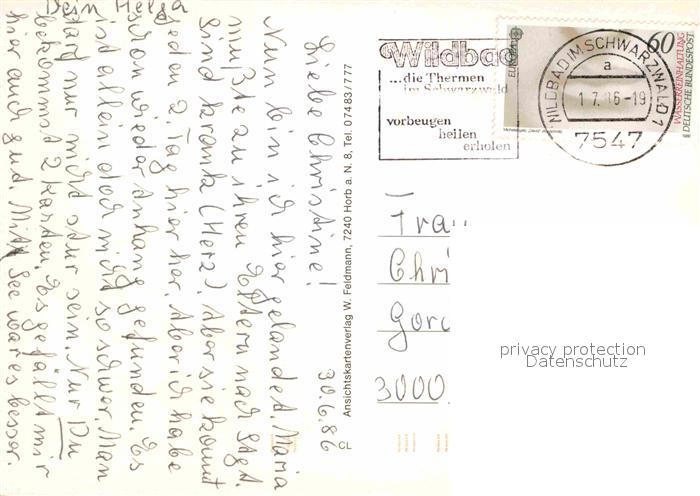 30.6.86
Liebe Christine!
Nun bin ich hier gelandet. Maria
mußte zu ihren Eltern nach Stgt.
Sind krank (Herz). Aber sie kommt
jeden 2. Tag hier her. Aber ich habe
schon wieder Anhang gefunden. Es
ist allein doch nicht so schwer. Man
darf nur nicht stur sein. Nur Du
bekommst 2 Karten. Es gefällt mir
hier auch gut. Mit See wär es besser.
Dein Helga
Ansichtskartenverlag W. Feldmann, 7240 Horb a. N. 8, Tel. 07483/777
CL
Wildbad
...die Thermen
im Schwarzwald
vorbeugen
heilen
erholen
WILDBAD IM SCHWARZWALD 1
a
1.7.86-19
7547
EUROPA
60
WASSERREINHALTUNG
DEUTSCHE BUNDESPOST
Frau
Chri
Gorc
3000
privacy protection
Datenschutz